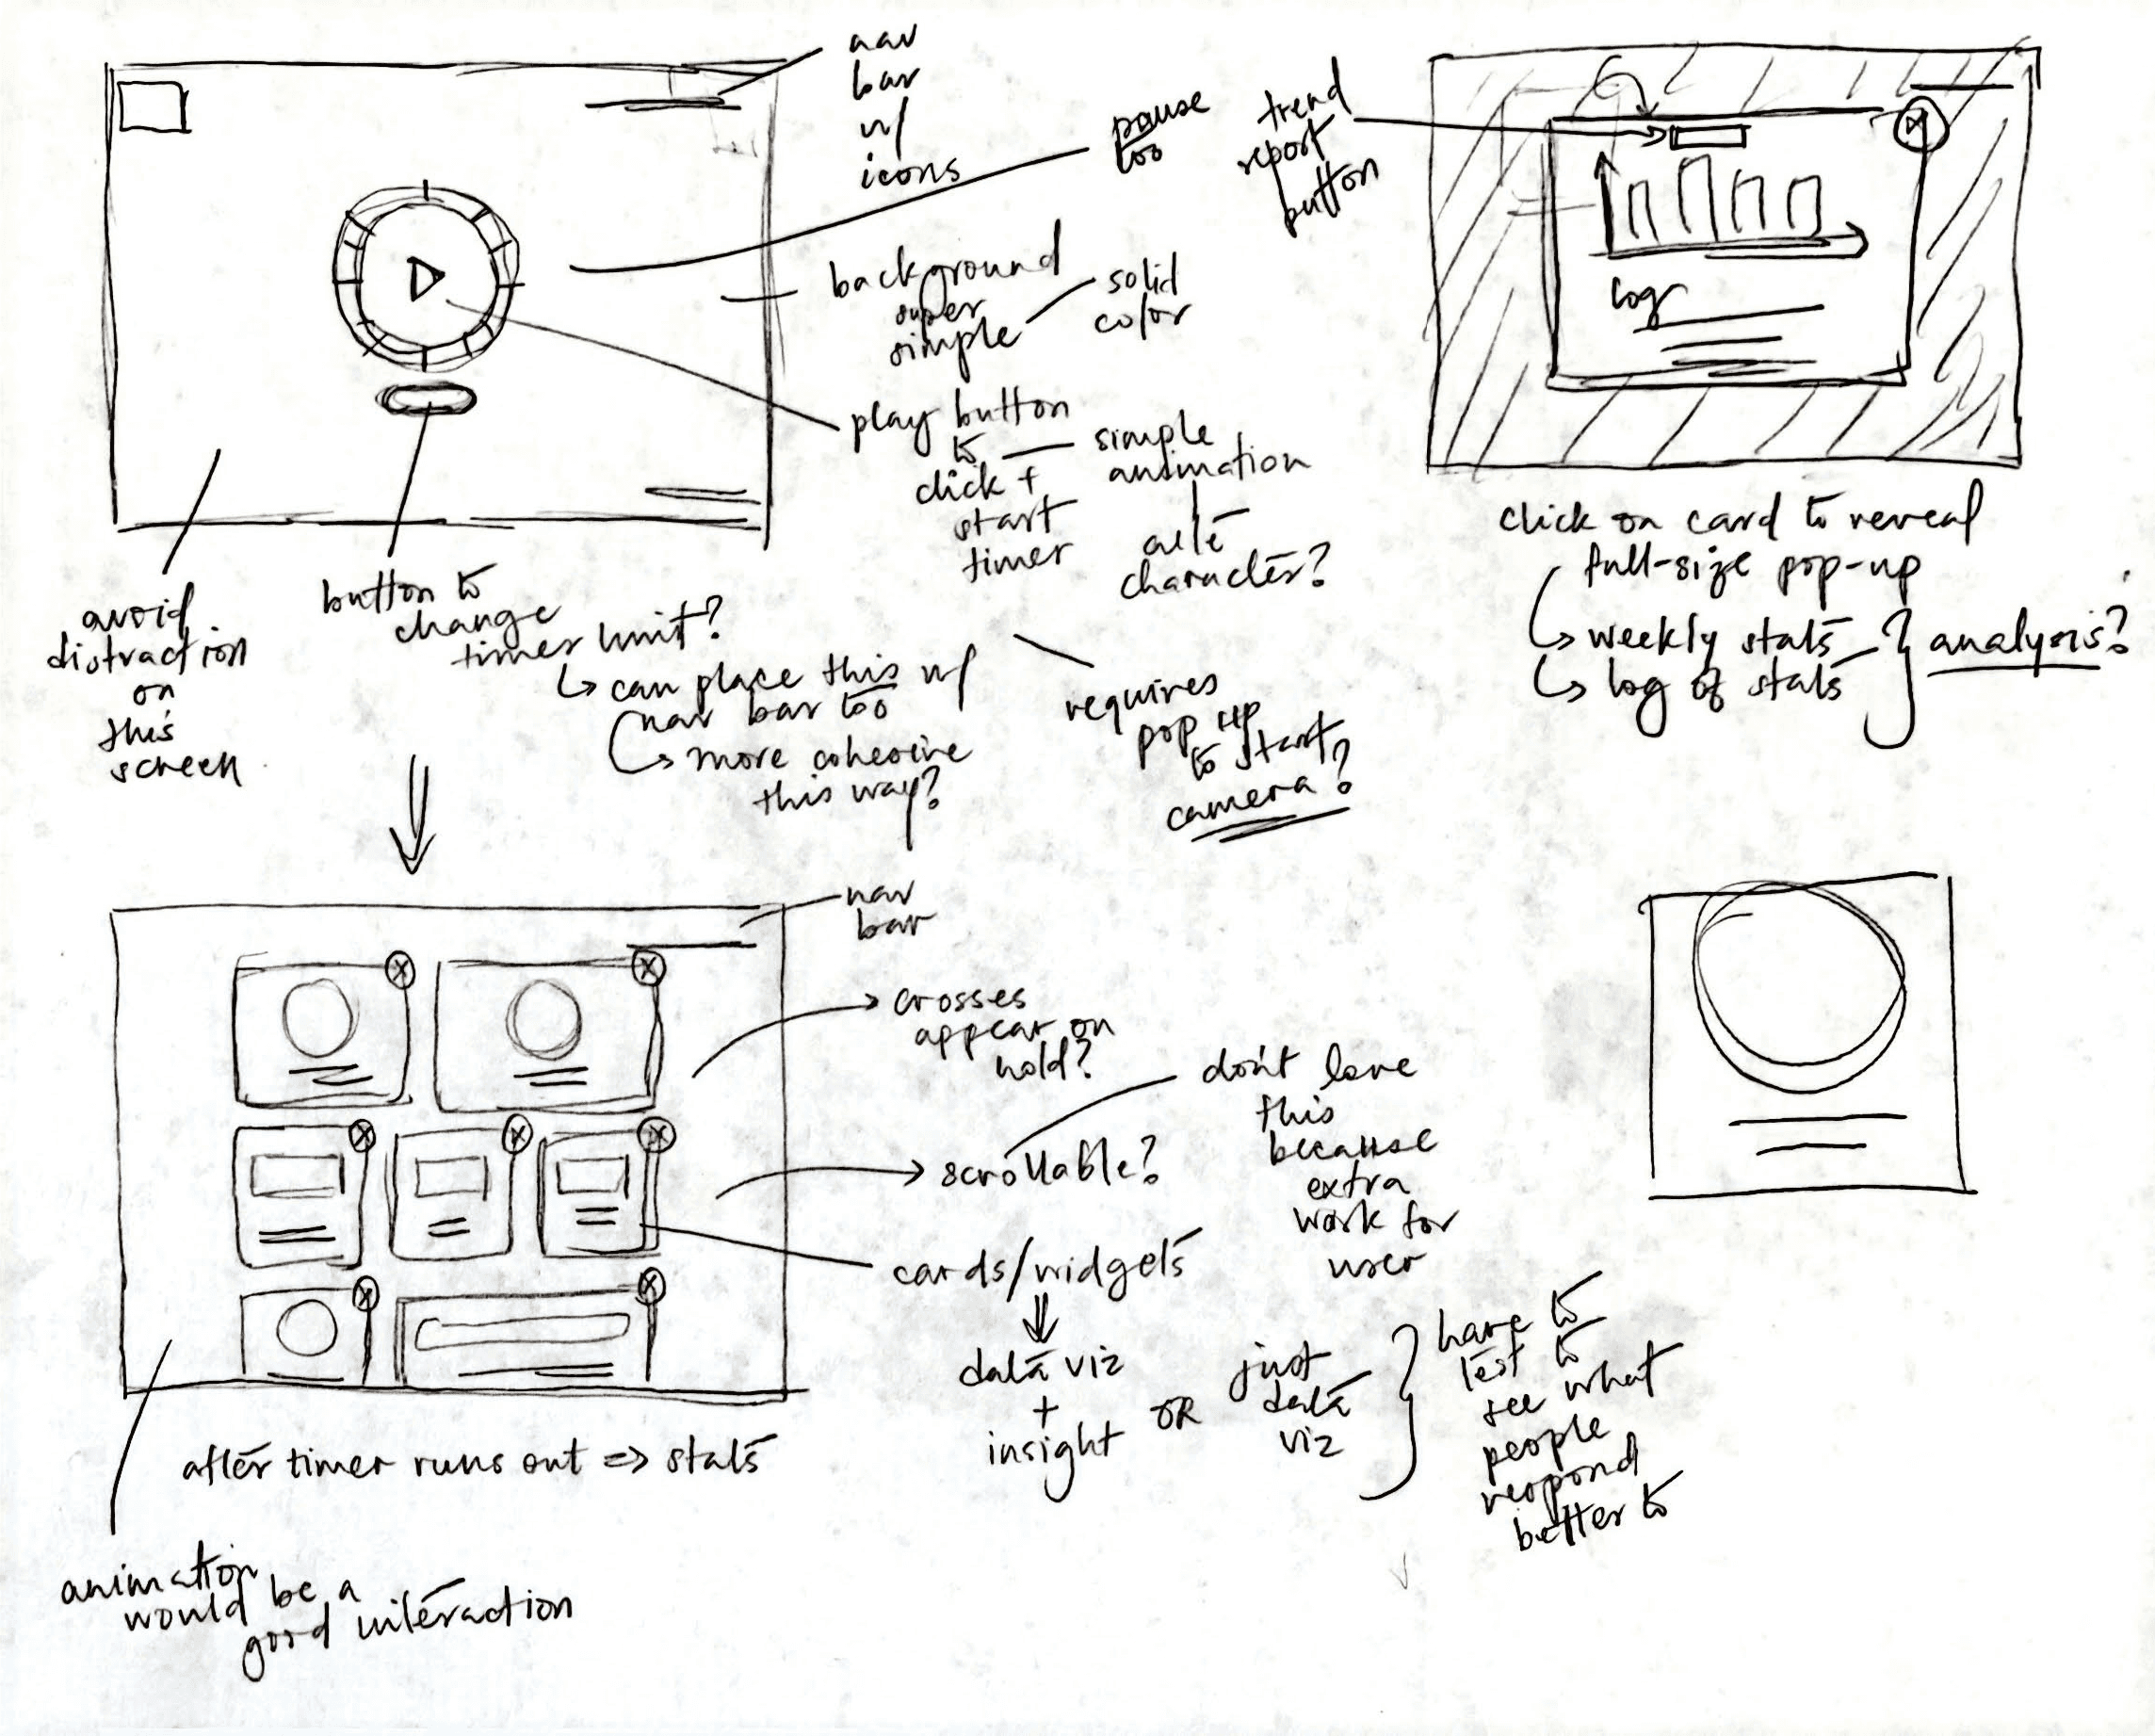 nav
bar
w/
icons
pause
too
trend
report
button
background
super
simple
solid
color
play button
to
click +
start
timer
simple
animation
cute
character?
log
click on card to reveal
full-size pop-up
↳ weekly stats
↳ log of stats
analysis?
avoid
distraction
on
this
screen
button to
change
timer limit?
↳ can place this w/
nav bar too
↳ more cohesive
this way?
requires
pop up
to start
camera?
nav
bar
crosses
appear on
hold?
scrollable?
don't love
this
because
extra
work for
user
cards/widgets
data viz
+
insight
OR
just
data
viz
have to
test to
see what
people
respond
better to
after timer runs out => stats
animation
would be a
good interaction